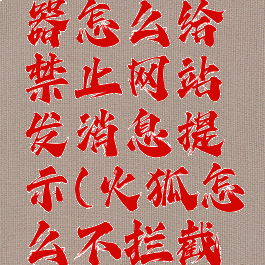 器怎么给
禁止网站
发消息提
示(火狐怎
么不拦截